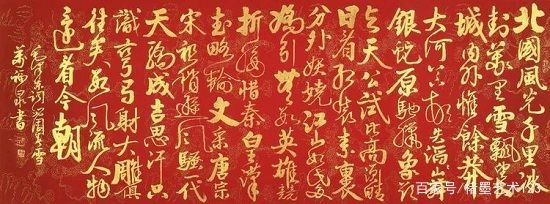 北國風光千里冰
封萬里雪飄望長
城內外惟餘莽莽
大河上下頓失滔滔山舞
銀蛇原馳蠟象欲
與天公試比高須晴
日看紅裝素裹
分外妖嬈江山如此多
嬌引無數英雄競
折腰惜秦皇漢
武略輸文采唐宗
宋祖稍遜風騷一代
天驕成吉思汗只
識彎弓射大雕俱
往矣數風流人物
還看今朝
毛澤東詞沁園春雪
萬福泉書
百家号/墨艺术193